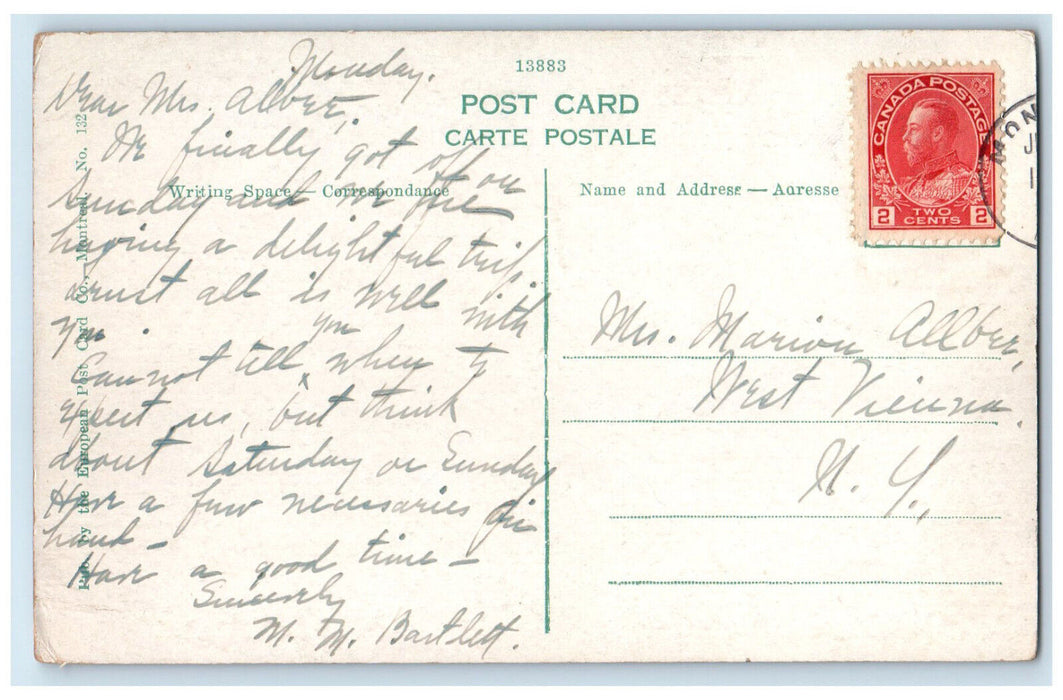 13883
POST CARD
CARTE POSTALE
Writing Space — Correspondance
Name and Address — Adresse
Pub. by the European Post Card Co., Montreal. No. 132
Monday.
Dear Mrs. Allbee,
We finally got off on
Sunday and are
having a delightful trip,
trust all is well with
you.
Cannot tell you when to
expect us, but think
about Saturday or Sunday
Have a few necessaries on
hand —
Have a good time —
Sincerely
M. M. Bartlett.
CANADA POSTAGE
2 TWO CENTS 2
MON
Mrs. Marion Allbee,
West Vienna,
N. Y.,